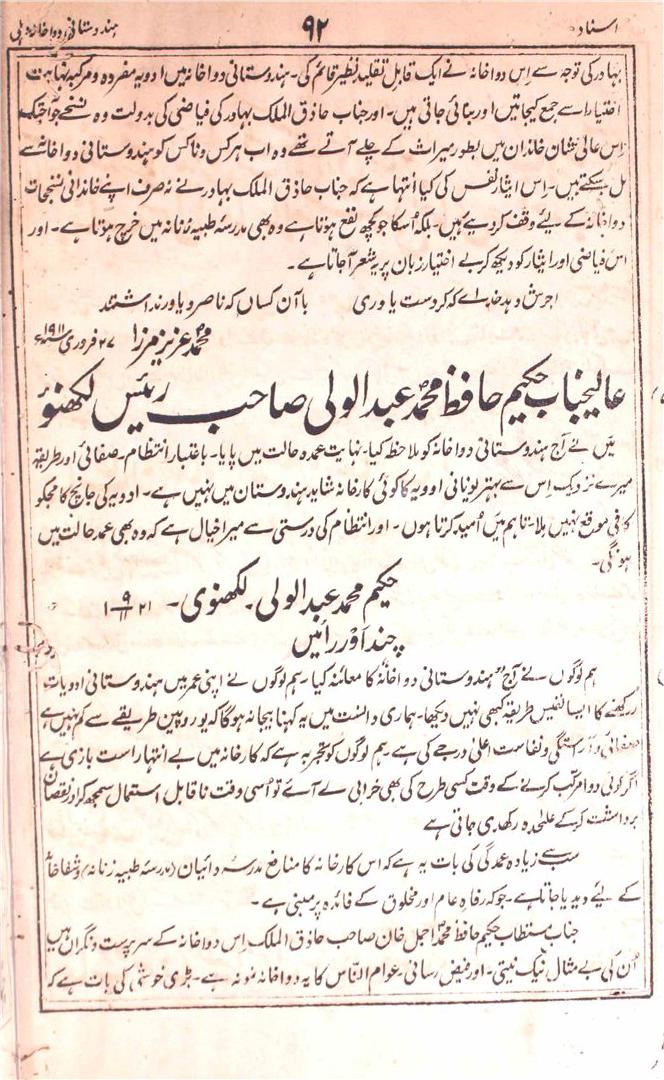 اسناد ۹۲ ہندوستانی دواخانہ دہلی
بہادر کی توجہ سے اِس دواخانہ نے ایک قابل تقلید نظیر قائم کی۔ ہندوستانی دواخانہ میں ادویہ مفردہ و مرکبہ نہایت
اختیار سے جمع کیجاتیں اور بنائی جاتی ہیں۔ اور جناب حاذق الملک بہادر کی فیاضی کی بدولت وہ نسخے جو آجتک
اِس عالی شان خاندان میں بطور میراث کے چلے آتے تھے وہ اب ہر کس و ناکس کو ہندوستانی دواخانہ سے
مل سکتے ہیں۔ اِس ایثار نفس کی کیا انتہا ہے کہ جناب حاذق الملک بہادر نے نہ صرف اپنے خاندانی نسخجات
دواخانہ کے لیئے وقف کر دیئے ہیں۔ بلکہ اُسکا جو کچھ نفع ہوتا ہے وہ بھی مدرسہ طبیہ زنانہ میں خرچ ہوتا ہے۔ اور
اس فیاضی اور ایثار کو دیکھ کر بے اختیار زبان پر یہ شعر آجاتا ہے۔
اجرش دہد خدا اے کہ کردست یاوری باآن کساں کہ ناصر و یاور نداشتند
محمد عزیز مرزا ۲۷ فروری ۱۹۱۱ء
عالیجناب حکیم حافظ محمد عبدالولی صاحب رئیس لکھنؤ
میں نے آج ہندوستانی دواخانہ کو ملاحظہ کیا۔ نہایت عمدہ حالت میں پایا۔ باعتبار انتظام۔ صفائی اور طریقہ
میرے نزدیک اِس سے بہتر یونانی ادویہ کا کوئی کارخانہ شاید ہندوستان میں نہیں ہے۔ ادویہ کی جانچ کا مجکو
کافی موقع نہیں ملا۔ تاہم میں اُمید کرتا ہوں۔ اور انتظام کی درستی سے میرا خیال ہے کہ وہ بھی عمدہ حالت میں
ہونگی۔
حکیم محمد عبدالولی۔ لکھنوی۔ ۲۱ ۹/۱۱ ۱
چند اور رائیں
ہم لوگوں نے آج ہندوستانی دواخانہ کا معائنہ کیا۔ ہم لوگوں نے اپنی عمر میں ہندوستانی ادویات
رکھنے کا ایسا نفیس طریقہ کبھی نہیں دیکھا۔ ہماری دانست میں یہ کہنا بیجا نہ ہوگا کہ یوروپین طریقے سے کم نہیں ہے
صفائی و آراستگی و نفاست اعلیٰ درجے کی ہے ہم لوگوں کو تجربہ ہے کہ کارخانہ میں بے انتہا راست بازی ہے
اگر کوئی دوا مرکب کرنے کے وقت کسی طرح کی بھی خرابی لے آئے تو اُسی وقت ناقابل استعمال سمجھ کر اور نقصان
برداشت کر کے علٰحدہ رکھدی جاتی ہے
سب سے زیادہ عمدگی کی بات یہ ہے کہ اس کارخانہ کا منافع مدرسہ دائیان (مدرسہ طبیہ زنانہ) و شفاخانہ
کے لیئے دیدیا جاتا ہے۔ جو کہ رفاہ عام اور مخلوق کے فائدہ پر مبنی ہے۔
جناب مستطاب حکیم حافظ محمد اجمل خان صاحب حاذق الملک اِس دواخانہ کے سرپرست و نگران ہیں
اُن کی بے مثال نیک نیتی۔ اور فیض رسانی عوام الناس کا یہ دواخانہ نمونہ ہے۔ بڑی خوشی کی بات ہے کہ